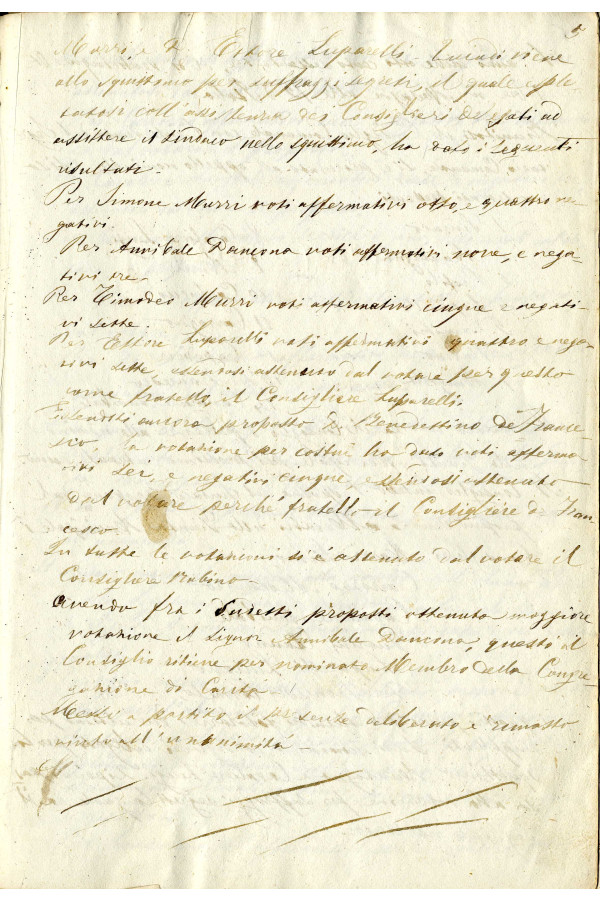 5
Murri e D. Ettore Luparelli
allo squittinio per suffraggi segreti, il quale esple-
tatosi coll'assistenza dei Consiglieri delegati ad
assistere il Sindaco nello squittinio, ha dato i seguenti
risultati.
Per Simone Murri voti affermativi otto, e quattro ne-
gativi.
Per Annibale Dancona voti affermativi nove, e nega-
tivi tre.
Per Timodeo Murri voti affermativi cinque e negati-
vi sette.
Per Ettore Luparelli voti affermativi quattro e nega-
tivi sette, essendosi astenuto dal votare per questo
come fratello, il Consigliere Luparelli.
Essendosi ancora proposto D. Benedettino de France-
sco. la votazione per costui ha dato voti afferma-
tivi sei, e negativi cinque, essendosi astenuto
dal votare perchè fratello il Consigliere de Fran-
cesco.
In tutte le votazioni si è astenuto dal votare il
Consigliere Rubino.
Avendo fra i suddetti proposti ottenuta maggiore
votazione il Signor Annibale Dancona, questi il
Consiglio ritiene per nominato Membro della Congre-
gazione di Carità.
Messo a partito il presente deliberato è rimasto
all'unanimità.